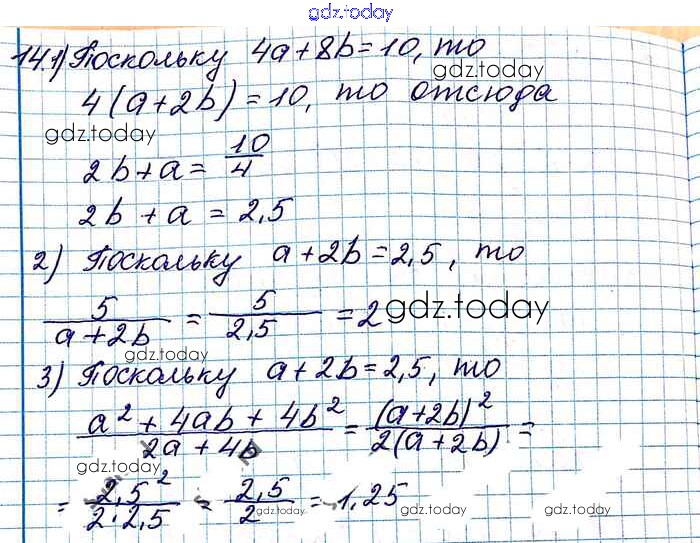 gdz.today
14.1) Поскольку 4a+8b=10, то
gdz.today
4(a+2b)=10, то отсюда
gdz.today
2b+a=10/4
2b+a=2,5
2) Поскольку a+2b=2,5, то
5/(a+2b) = 5/2,5 = 2 gdz.today
gdz.today
3) Поскольку a+2b=2,5, то
(a²+4ab+4b²)/(2a+4b) = (a+2b)²/2(a+2b) =
gdz.today
= 2,5²/2·2,5 = 2,5/2 = 1,25
gdz.today